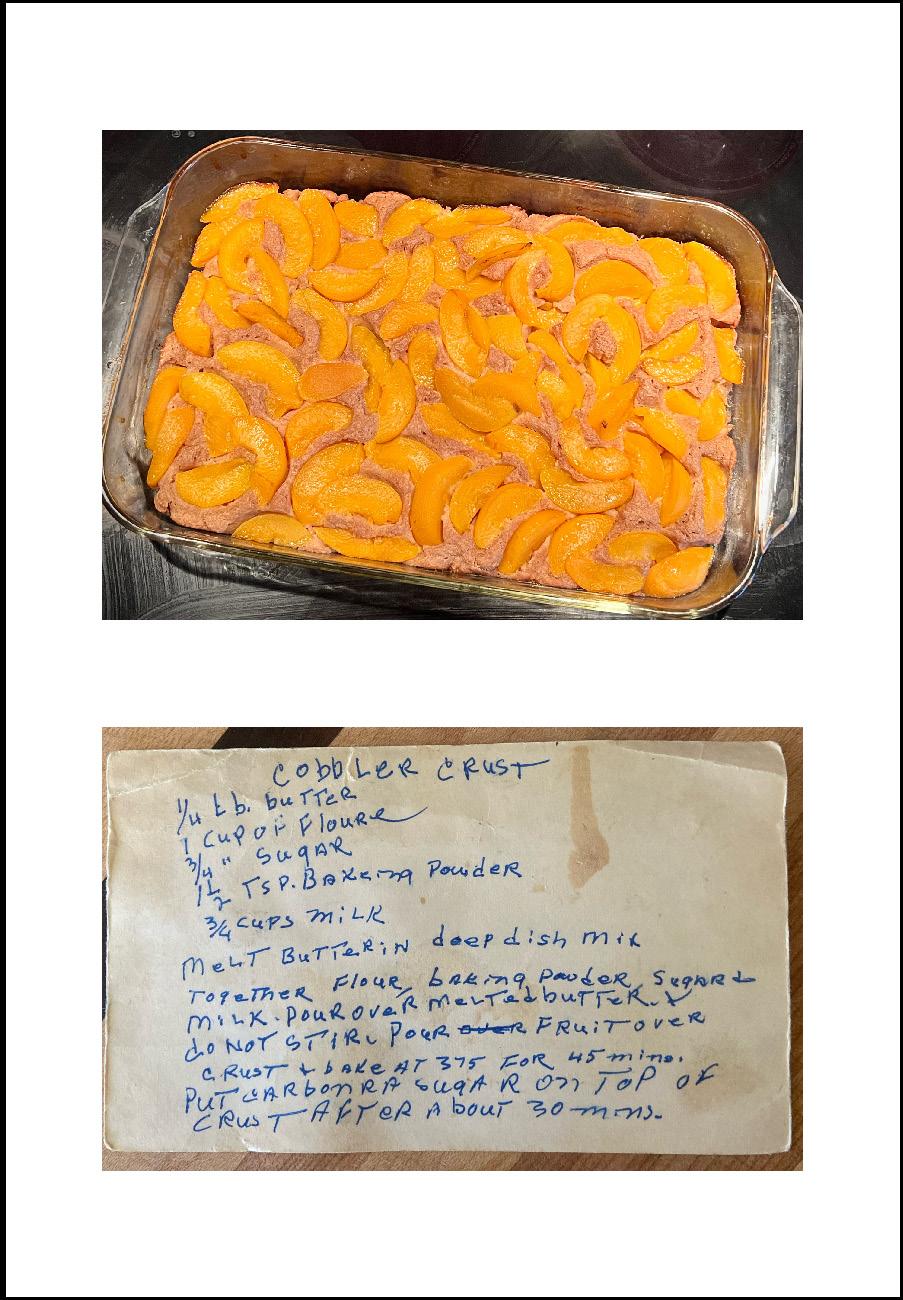 Cobbler Crust
1/4 Lb. butter
1 Cup of Floure
3/4 " Sugar
1 1/2 Tsp. Baking Powder
3/4 cups milk
Melt Butter in deep dish Mix
Together Flour, baking Powder, Sugar &
Milk. Pour over melted butter.
do Not STIR. Pour FRUIT over
CRUST & bake AT 375 FOR 45 mins.
Put CARbonRA Sugar on Top of
CRUST AFTER About 30 mins.